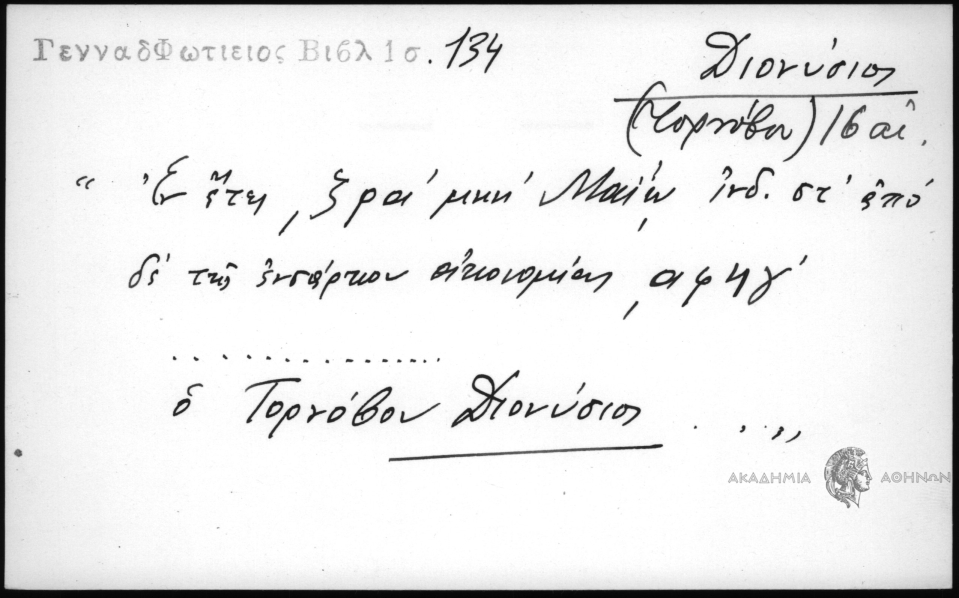 ΓενναδΦωτιειος Βιβλ 1 σ. 134
Διονύσιος
(Τορνόβου) 16 αἰ.
“ Ἐν ἔτει ͵ζραʹ μηνὶ Μαΐῳ ἰνδ. στʹ ἀπό
δέ τῆς ἐνσάρκου οἰκονομίας ͵αφϟγʹ
.....................
ὁ Τορνόβου Διονύσιος . . . ”
ΑΚΑΔΗΜΙΑ ΑΘΗΝΩΝ